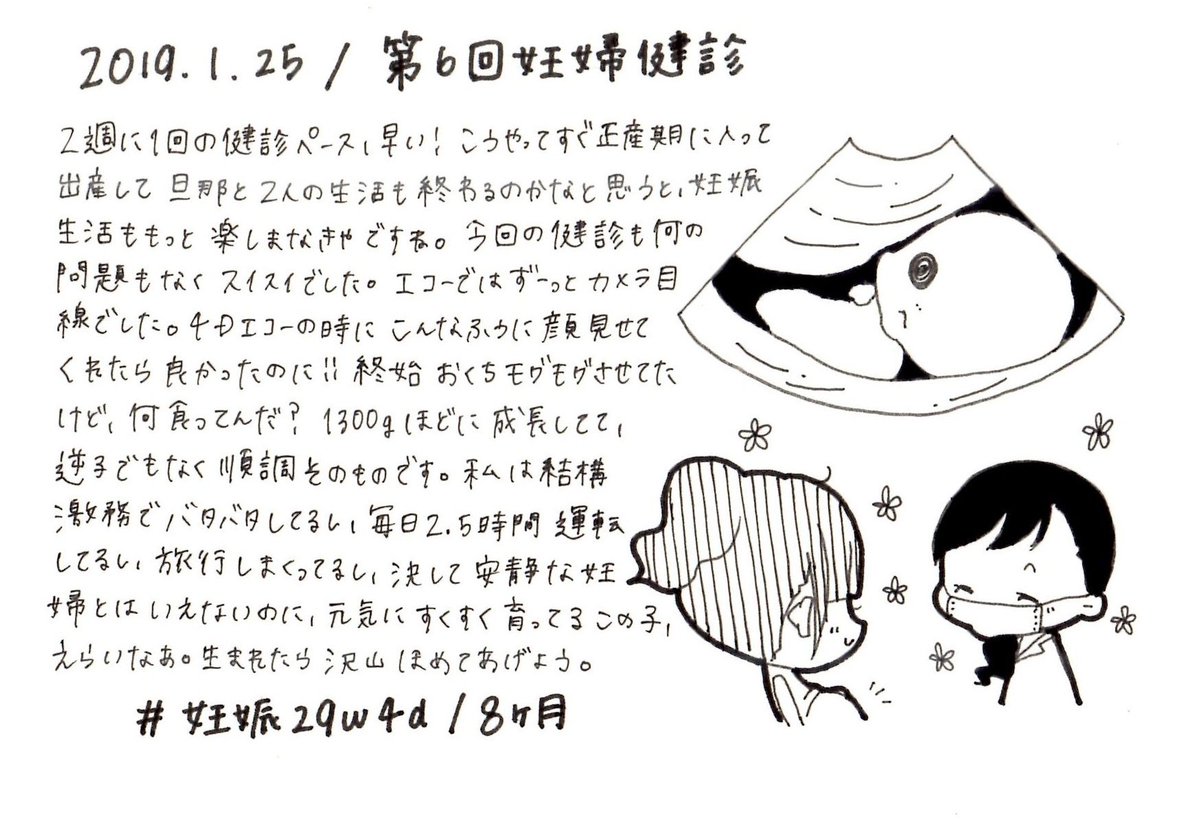 2019.1.25 / 第6回妊婦健診
2週に1回の健診ペース、早い！こうやってすぐ正産期に入って
出産して旦那と2人の生活も終わるのかなと思うと、妊娠
生活ももっと楽しまなきゃですね。今回の健診も何の
問題もなくスイスイでした。エコーではずーっとカメラ目
線でした。4Dエコーの時にこんなふうに顔見せて
くれたら良かったのに!! 終始おくちモグモグさせてた
けど、何食ってんだ？1300gほどに成長してて、
逆子でもなく順調そのものです。私は結構
激務でバタバタしてるし、毎日2.5時間運転
してるし、旅行しまくってるし、決して安静な妊
婦とはいえないのに、元気にすくすく育ってるこの子、
えらいなあ。生まれたら沢山ほめてあげよう。
#妊娠29w4d / 8ヶ月